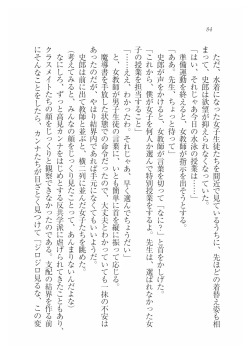 84
ただ、水着になった女子生徒たちを間近で見ているうちに、先ほどの着替え姿も相
まって、史郎は欲望が抑えられなくなっていた。
「はい、それじゃあ今日の水泳の授業は……」
準備運動を終えると、女教師が指示を出そうとする。
「ああ、先生、ちょっと待って」
史郎が声をかけると、女教師が言葉を切って「なに？」と首をかしげた。
「これから、僕が女子を何人か選んで特別授業をするよ。先生は、選ばれなかった女
子の授業を担当すること」
「……ええ、わかったわ。それじゃあ、早く選んでちょうだい」
と、女教師が男子生徒の言葉に、いとも簡単に首を縦に振って応じる。
魔導書を手放した状態での命令だったので、大丈夫とわかっていても一抹の不安は
あったのだが、やはり結界内であれば手元になくてもいいようだ。
史郎は前に出て教師と並ぶと、横二列に並んだ女子たちを眺めた。
（考えてみると、みんなをじっくり見ることって、あんまりないんだよな）
なにしろ、ずっと高見カンナをはじめとする反共学派に虐げられてきたこともあり、
クラスメイトたちの顔をじっくりと観察できなかったのである。支配の結界を作る前
にそんなことをしたら、カンナたちが目ざとく見つけて「ジロジロ見るな、この変